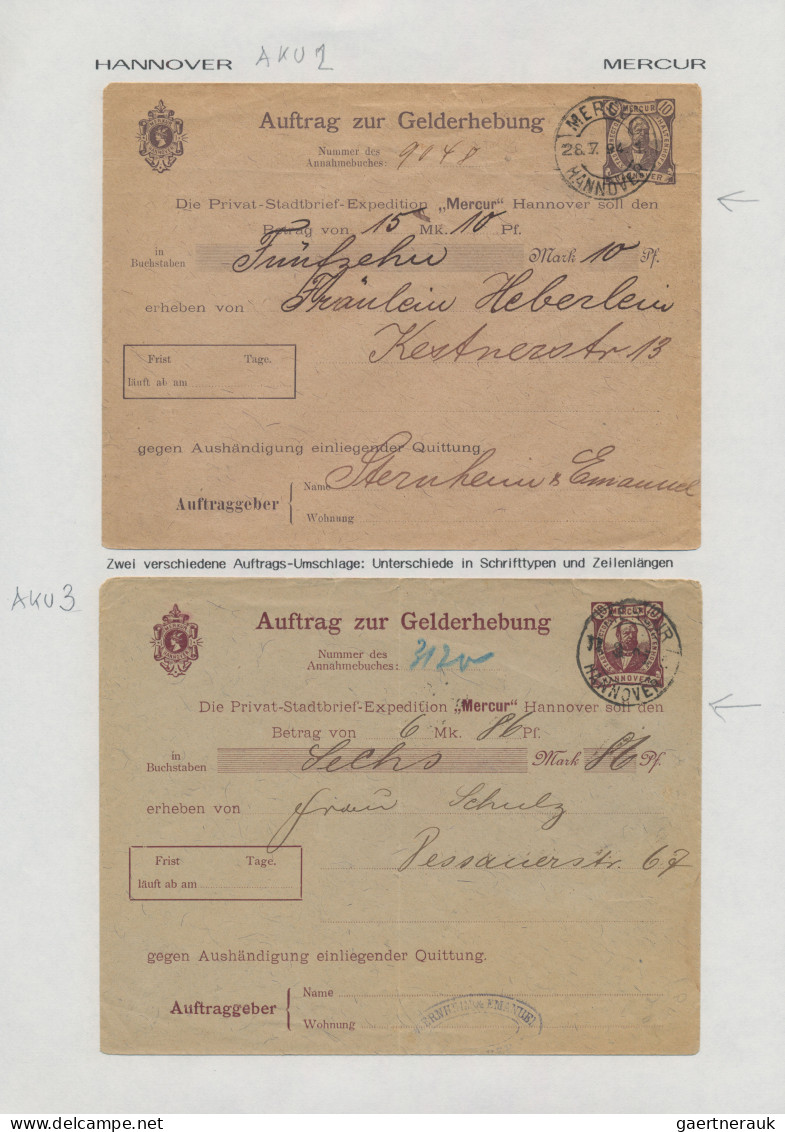 HANNOVER AKU 2 MERCUR
Auftrag zur Gelderhebung
10 MERCUR 10
MERCUR
28.V.94
HANNOVER
HANNOVER
Nummer des
Annahmebuches: 9048
Die Privat-Stadtbrief-Expedition „Mercur" Hannover soll den
Betrag von 15 Mk. 10 Pf.
in
Buchstaben Fünfzehn Mark 10 Pf.
erheben von Fräulein Heberlein
Kestnerstr. 13
Frist Tage.
läuft ab am
gegen Aushändigung einliegender Quittung
Auftraggeber
Name Sternheim & Emanuel
Wohnung
Zwei verschiedene Auftrags-Umschlage: Unterschiede in Schrifttypen und Zeilenlängen
AKU 3
Auftrag zur Gelderhebung
10 MERCUR 10
HANNOVER
HANNOVER
Nummer des
Annahmebuches:
Die Privat-Stadtbrief-Expedition „Mercur" Hannover soll den
Betrag von 6 Mk. 86 Pf.
in
Buchstaben Sechs Mark 86 Pf.
erheben von Frau Schulz
Dessauerstr. 67
Frist Tage.
läuft ab am
gegen Aushändigung einliegender Quittung.
Auftraggeber
Name
Wohnung
STERNHEIM & EMANUEL
gaertnerauk